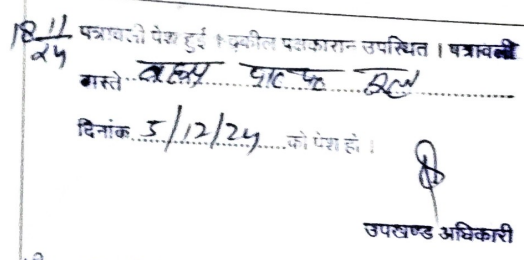 18/11/24 पत्रावली पेश हुई । वकील पक्षकारान उपस्थित । पत्रावली
वास्ते बहस
दिनांक 5/12/24 को पेश हो ।
उपखण्ड अधिकारी